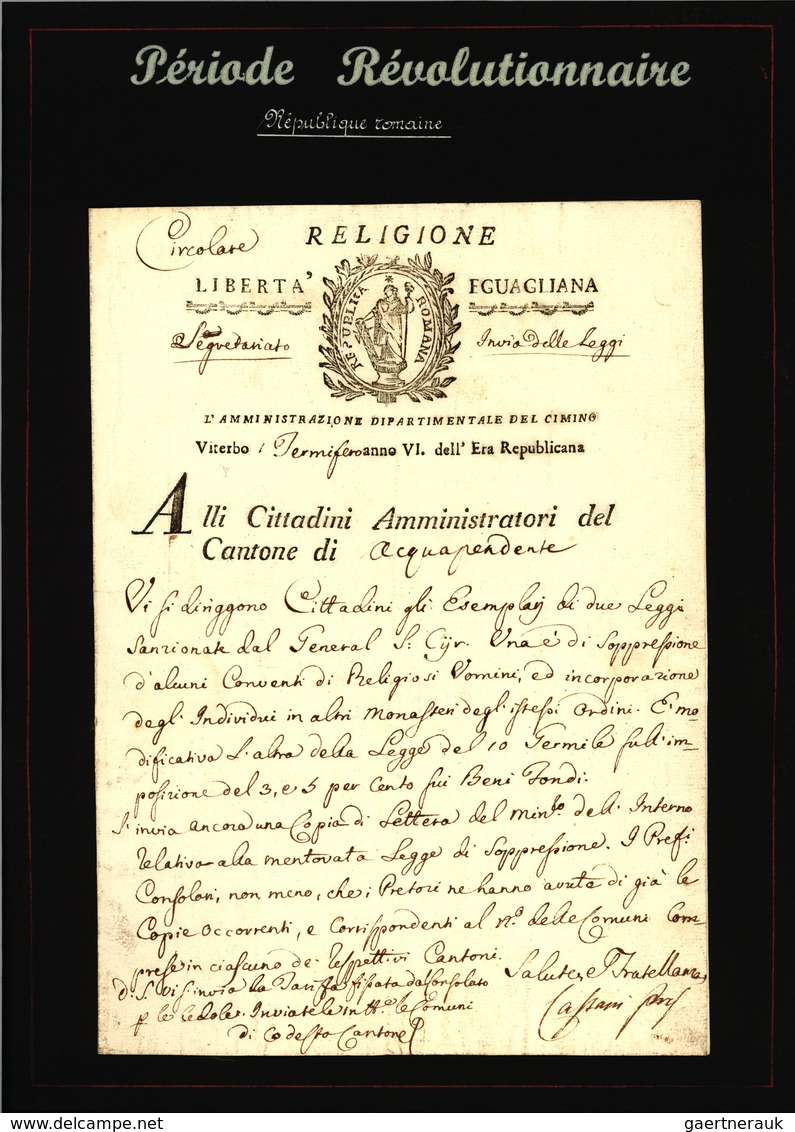 Période Révolutionnaire
République romaine
Circolare
RELIGIONE
LIBERTA' EGUAGLIANA
REPUBLICA ROMANA
Segretariato
Invio delle Leggi
L'AMMINISTRAZIONE DIPARTIMENTALE DEL CIMINO
Viterbo 1 Termifero anno VI. dell' Era Republicana
Alli Cittadini Amministratori del
Cantone di Acquapendente
Vi si diriggono Cittadini gli Esemplarj di due Leggi
Sanzionate dal General S. Cyr. Una è di Soppressione
d'alcuni Conventi di Religiosi Uomini, ed incorporazione
degl' Individui in altri Monasteri degl' istessi Ordini. E' mo-
dificativa l'altra della Legge del 10 Termile sull' im-
posizione del 3, e 5 per Cento sui Beni Fondi.
S' invia ancora una Copia di Lettera del Min.ro dell' Interno
relativa alla mentovata Legge di Soppressione. I Prefi.
Consolari, non meno, che i Pretori ne hanno avuta di già le
Copie occorrenti, e corrispondenti al N.o delle Comuni Com-
prese in ciascuno de' respettivi Cantoni.
Salute, e Fratellanza
d. S. Vi s' invia la Tariffa fissata dal Consolato
p le Cedole. Inviatela in tt.e le Comuni
di codesto Cantone
delcampe.net
gaertnerauk